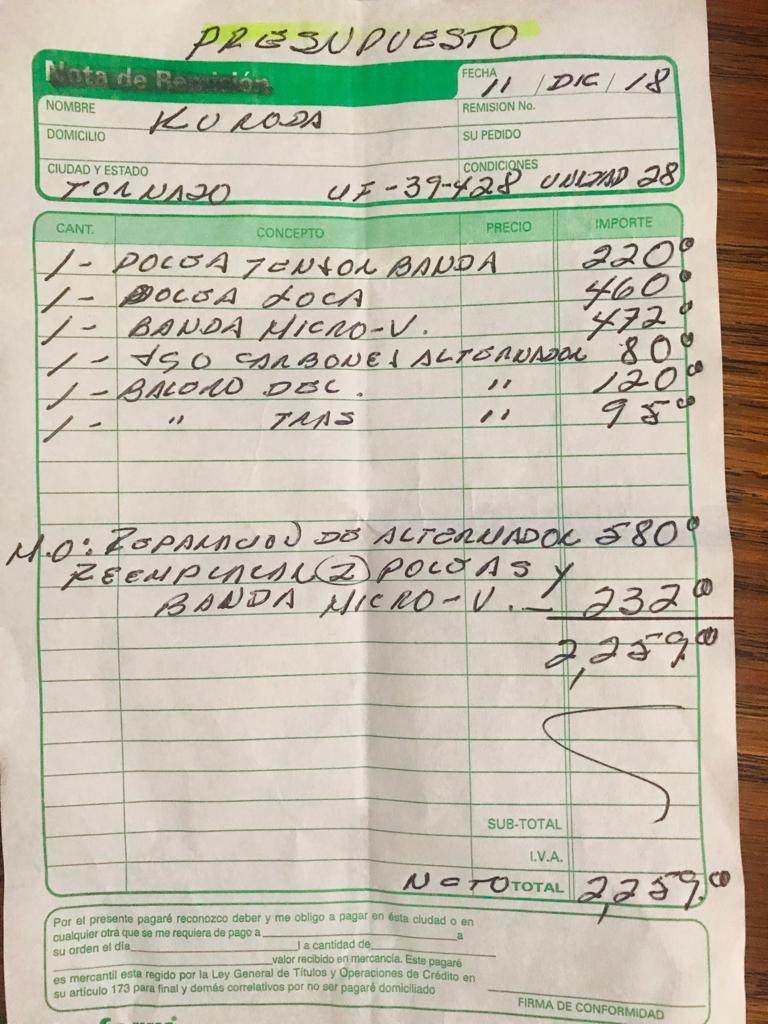 PRESUPUESTO
Nota de Remisión
FECHA 11 / DIC / 18
NOMBRE KURODA
REMISION No.
DOMICILIO
SU PEDIDO
CIUDAD Y ESTADO
CONDICIONES
TORNADO UF-39-428 UNIDAD 28
CANT. CONCEPTO PRECIO IMPORTE
1- POLEA TENSOR BANDA 220°
1- POLEA LOCA 460°
1- BANDA MICRO-V. 472°
1- JGO CARBONES ALTERNADOR 80°
1- BALERO DEL. " 120°
1- " TRAS " 95°
M.O: REPARACION DE ALTERNADOR 580°
REEMPLAZAR (2) POLEAS Y
BANDA MICRO-V. - 232.00
2,259.00
SUB-TOTAL
I.V.A.
NETO TOTAL 2,259.00
Por el presente pagaré reconozco deber y me obligo a pagar en ésta ciudad o en
cualquier otra que se me requiera de pago a a
su orden el día la cantidad de
valor recibido en mercancía. Este pagaré
es mercantil esta regido por la Ley General de Títulos y Operaciones de Crédito en
su artículo 173 para final y demás correlativos por no ser pagaré domiciliado
FIRMA DE CONFORMIDAD